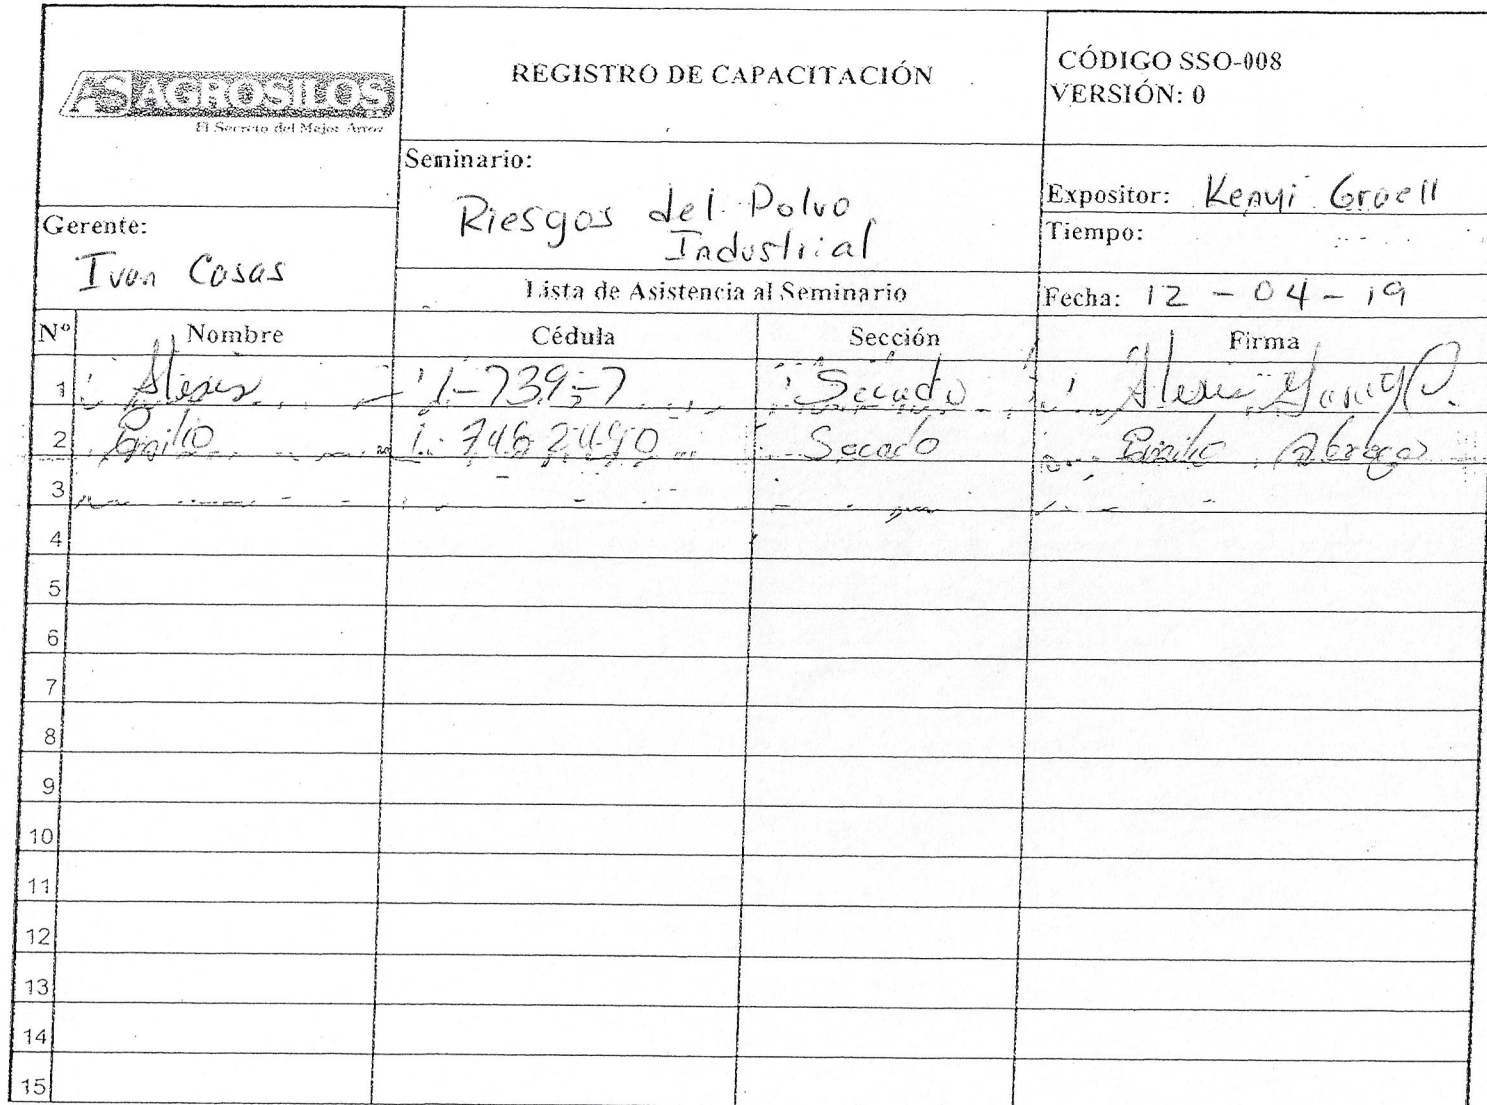 AS AGROSILOS
El Secreto del Mejor Arroz
REGISTRO DE CAPACITACIÓN
CÓDIGO SSO-008
VERSIÓN: 0
Seminario:
Riesgos del Polvo
Industrial
Expositor: Kenyi Graell
Tiempo:
Gerente:
Ivan Casas
Lista de Asistencia al Seminario
Fecha: 12 - 04 - 19
Nº Nombre Cédula Sección Firma
1 Alexis 1-739-7 Secado Alexis
2 1-746 2490 Secado Abrego
3
4
5
6
7
8
9
10
11
12
13
14
15